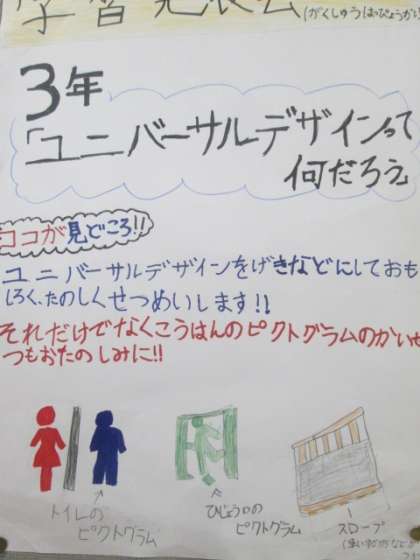 学習発表会(がくしゅうはっぴょうかい)
3年
「ユニバーサルデザインって
何だろう
ココが見どころ!!
ユニバーサルデザインをげきなどにしておも
しろく、たのしくせつめいします!!
それだけでなくこうはんのピクトグラムのかいせ
つもおたのしみに!!
トイレの
ピクトグラム
ひじょう口の
ピクトグラム
スロープ